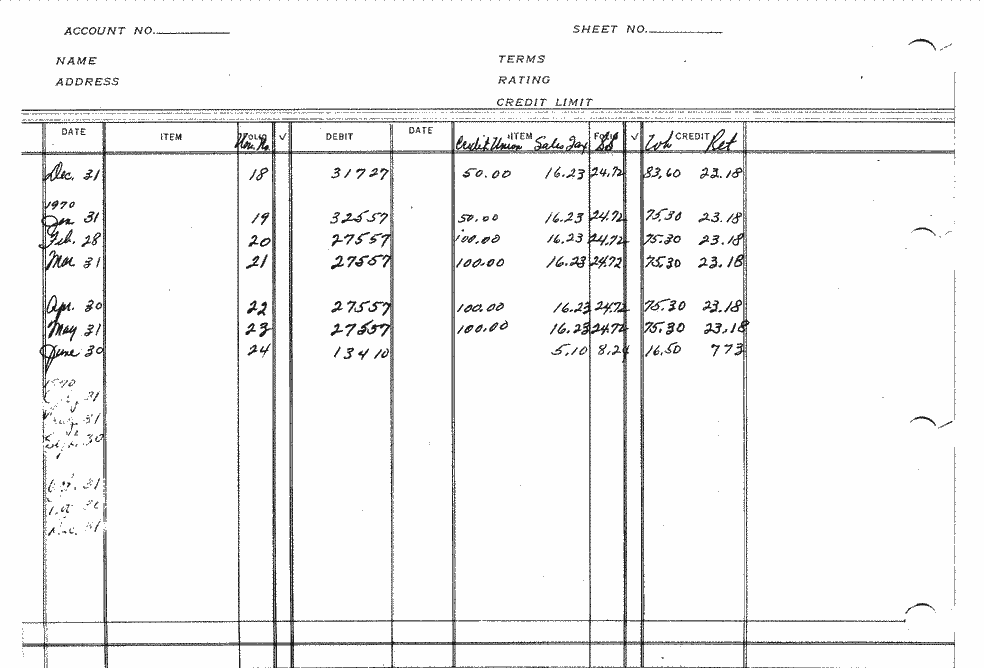 ACCOUNT NO. SHEET NO.
NAME TERMS
ADDRESS RATING
CREDIT LIMIT
DATE ITEM FOLIO √ DEBIT DATE ITEM FOLIO √ CREDIT
Credit Union Sales Tax SS Wh Ret
Dec. 31 18 317 27 50.00 16.23 24.72 83.60 23.18
1970
Jan. 31 19 325 57 50.00 16.23 24.72 75.30 23.18
Feb. 28 20 275 57 100.00 16.23 24.72 75.30 23.18
Mar. 31 21 275 57 100.00 16.23 24.72 75.30 23.18
Apr. 30 22 275 57 100.00 16.23 24.72 75.30 23.18
May 31 23 275 57 100.00 16.23 24.72 75.30 23.18
June 30 24 134 10 5.10 8.24 16.50 7 73
1970
31
Aug. 31
Sept. 30
Oct. 31
31